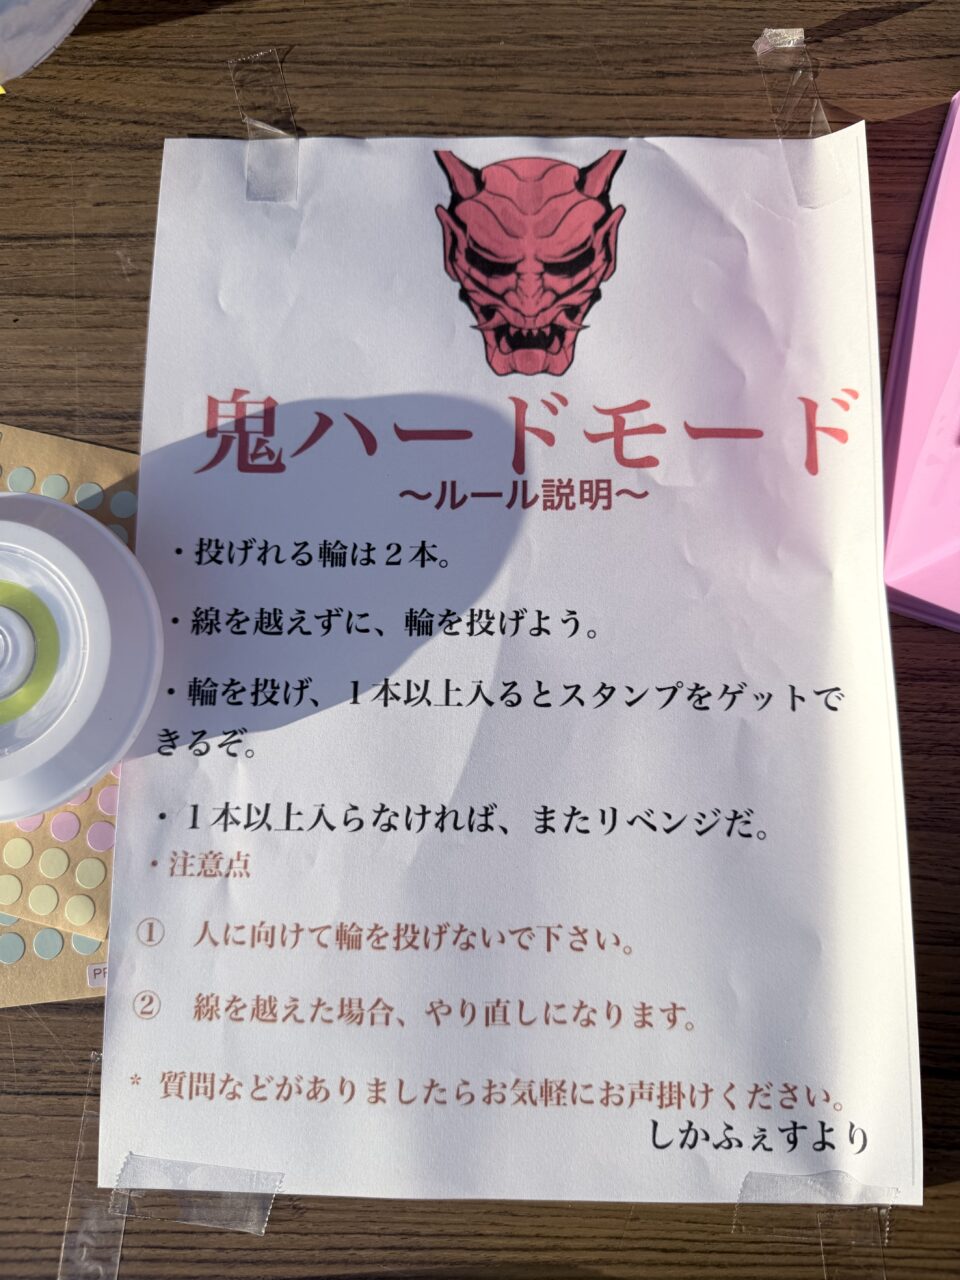 鬼ハードモード
～ルール説明～
・投げれる輪は２本。
・線を越えずに、輪を投げよう。
・輪を投げ、１本以上入るとスタンプをゲットで
きるぞ。
・１本以上入らなければ、またリベンジだ。
・注意点
①　人に向けて輪を投げないで下さい。
②　線を越えた場合、やり直しになります。
* 質問などがありましたらお気軽にお声掛けください。
しかふぇすより